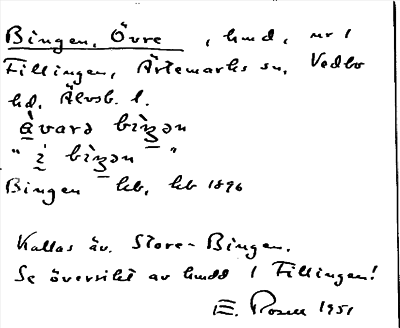 Bingen, Övre, hmd, nr 1
Fillingen, Ärtemarks sn, Vedbo
hd, Älvsb. l.
å̀varə bìŋən
" i bìŋən "
Bingen hb, hb 1896
Kallas äv. Store-Bingen.
Se översikt av hmdd 1 Fillingen!
E. Rosell 1951